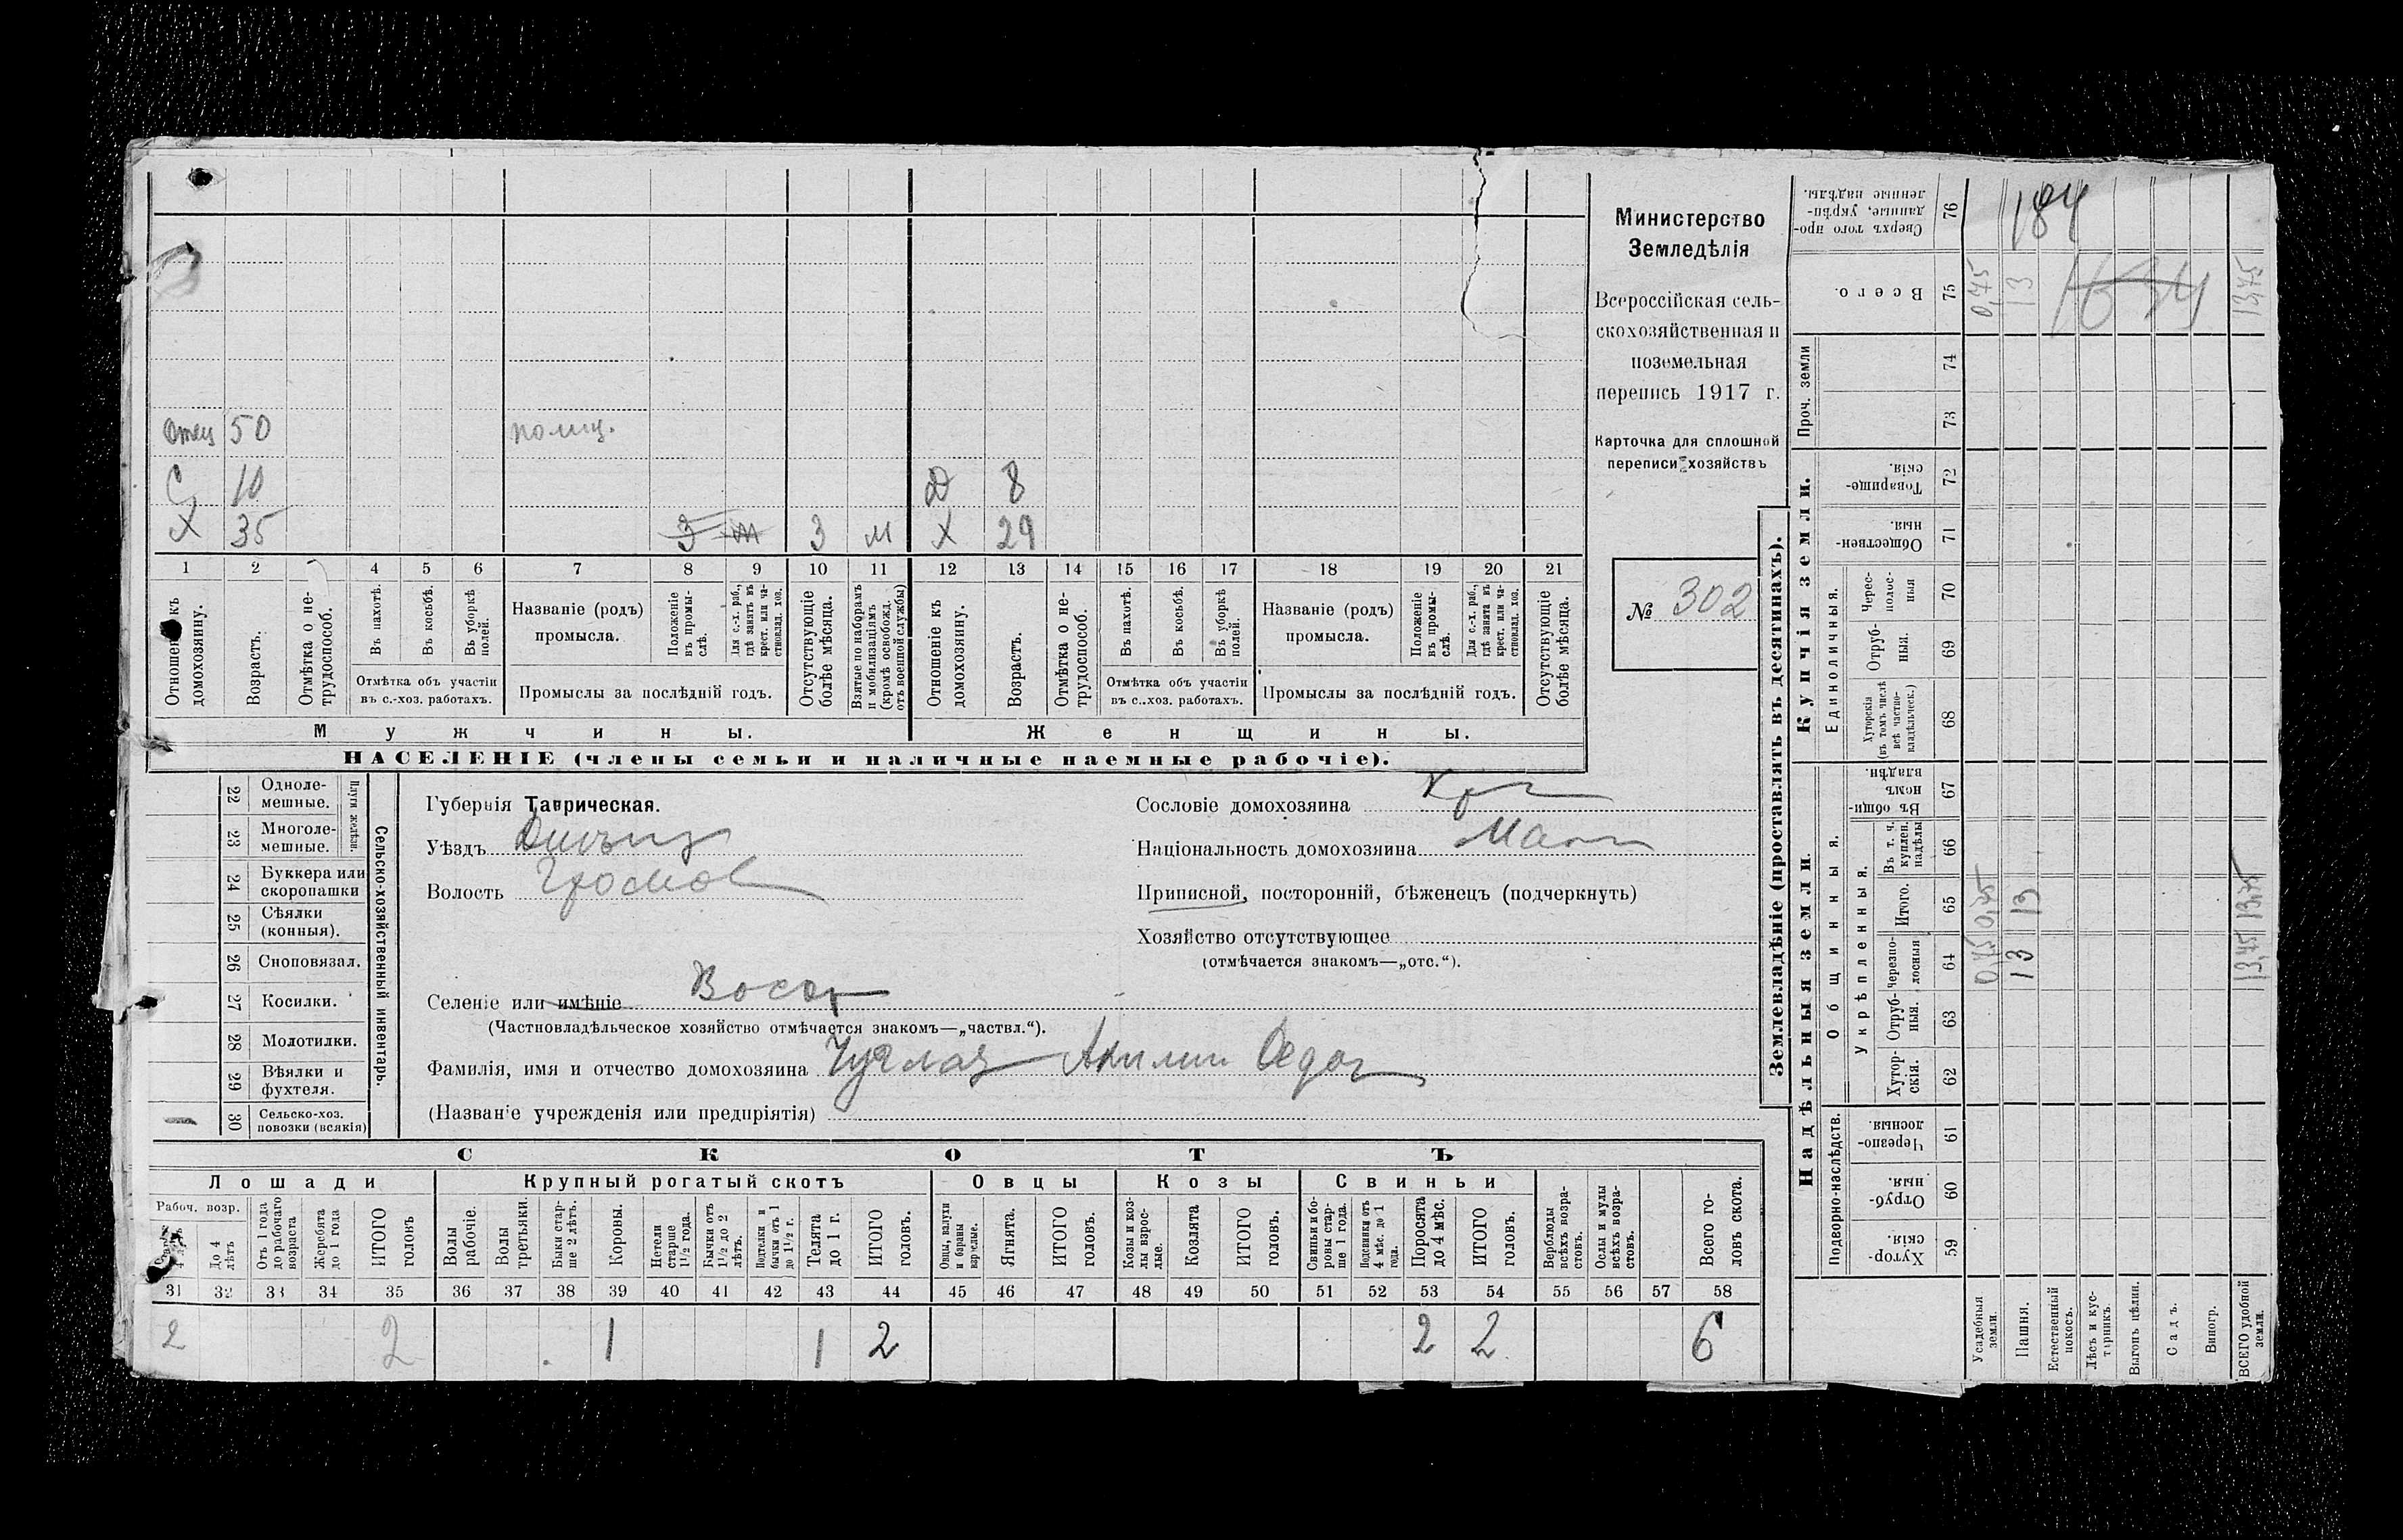 Отец 50 помщ.
С 10 Д 8
Х 35 З м З м Х 29
1 2 4 5 6 7 8 9 10 11 12 13 14 15 16 17 18 19 20 21
Отношен къ домохозяину.
Возрастъ.
Отмѣтка о не-трудоспособ.
Въ пахотѣ.
Въ косьбѣ.
Въ уборкѣ полей.
Отмѣтка объ участіи въ с.-хоз. работахъ.
Названіе (родъ) промысла.
Положеніе въ промы-слѣ.
Для с.-х. раб., гдѣ занятъ въ крест. или ча-стновлад. хоз.
Промыслы за послѣдній годъ.
Отсутствующіе болѣе мѣсяца.
Взятые по наборамъ и мобилизаціямъ (кромѣ освобожд. отъ военной службы)
Отношеніе къ домохозяину.
Возрастъ.
Отмѣтка о не-трудоспособ.
Въ пахотѣ.
Въ косьбѣ.
Въ уборкѣ полей.
Отмѣтка объ участіи въ с.-хоз. работахъ.
Названіе (родъ) промысла.
Положеніе въ промы-слѣ.
Для с.-х. раб., гдѣ занята въ крест. или ча-стновлад. хоз.
Промыслы за послѣдній годъ.
Отсутствующіе болѣе мѣсяца.
Мужчины. Женщины.
НАСЕЛЕНІЕ (члены семьи и наличные наемные рабочіе).
Министерство
Земледѣлія
Всероссійская сель-
скохозяйственная и
поземельная
перепись 1917 г.
Карточка для сплошной
переписи хозяйствъ
№ 302
22 Одноле-мешные.
23 Многоле-мешные.
Плуги желѣзн.
24 Буккера или скоропашки
25 Сѣялки (конныя).
26 Сноповязал.
27 Косилки.
28 Молотилки.
29 Вѣялки и фухтеля.
30 Сельско-хоз. повозки (всякія)
Сельско-хозяйственный инвентарь.
Губернія Таврическая.
Уѣздъ
Волость
Селеніе или имѣніе
(Частновладѣльческое хозяйство отмѣчается знакомъ—„частвл.“).
Фамилія, имя и отчество домохозяина
(Названіе учрежденія или предпріятія)
Сословіе домохозяина
Національность домохозяина
Приписной, посторонній, бѣженецъ (подчеркнуть)
Хозяйство отсутствующее
(отмѣчается знакомъ—„отс.“).
СКОТЪ
Лошади Крупный рогатый скотъ Овцы Козы Свиньи
Рабоч. возр.
До 4 лѣтъ
Отъ 1 года до рабочаго возраста
Жеребята до 1 года
ИТОГО головъ
Волы рабочіе.
Волы третьяки.
Быки стар-ше 2 лѣтъ.
Коровы.
Нетели старше 1½ года.
Бычки отъ 1½ до 2 лѣтъ.
Подтелки и бычки отъ 1 до 1½ г.
Телята до 1 г.
ИТОГО головъ.
Овцы, валухи и бараны взрослые.
Ягнята.
ИТОГО головъ.
Козы и коз-лы взрос-лые.
Козлята
ИТОГО головъ.
Свиньи и бо-ровы стар-ше 1 года.
Подсвинки отъ 4 мѣс. до 1 года.
Поросята до 4 мѣс.
ИТОГО головъ.
Верблюды всѣхъ возра-стовъ.
Ослы и мулы всѣхъ возра-стовъ.
Всего го-ловъ скота.
31 32 33 34 35 36 37 38 39 40 41 42 43 44 45 46 47 48 49 50 51 52 53 54 55 56 57 58
2 2 1 1 2 2 2 6
Землевладѣніе (проставлять въ десятинахъ).
Надѣльныя земли. Купчія земли. Проч. земли
Подворно-наслѣдств.
Общинныя.
Укрѣпленныя.
Единоличныя.
Хутор-скія. 59
Отруб-ныя. 60
Черезпо-лосныя 61
Хутор-скія. 62
Отруб-ныя. 63
черезпо-лосныя 64
Итого. 65
Въ т. ч. куплен. надѣлы 66
Въ общин-номъ владѣн. 67
Хуторскія (въ томъ числѣ всѣ частно-владѣльческ.) 68
Отруб-ныя. 69
Черес-полос-ныя 70
Обществен-ныя. 71
Товарище-скія. 72
73
74
Всего. 75
Сверхъ того про-данные, укрѣп-ленные надѣлы. 76
Усадебныя земли. 0,75 0,75 0,75
Пашня. 13 13 13
Естественный покосъ.
Лѣсъ и кус-тарникъ.
Выгонъ цѣлин.
Садъ.
Виногр.
ВСЕГО удобной земли. 13,75 13,75 13,75
184